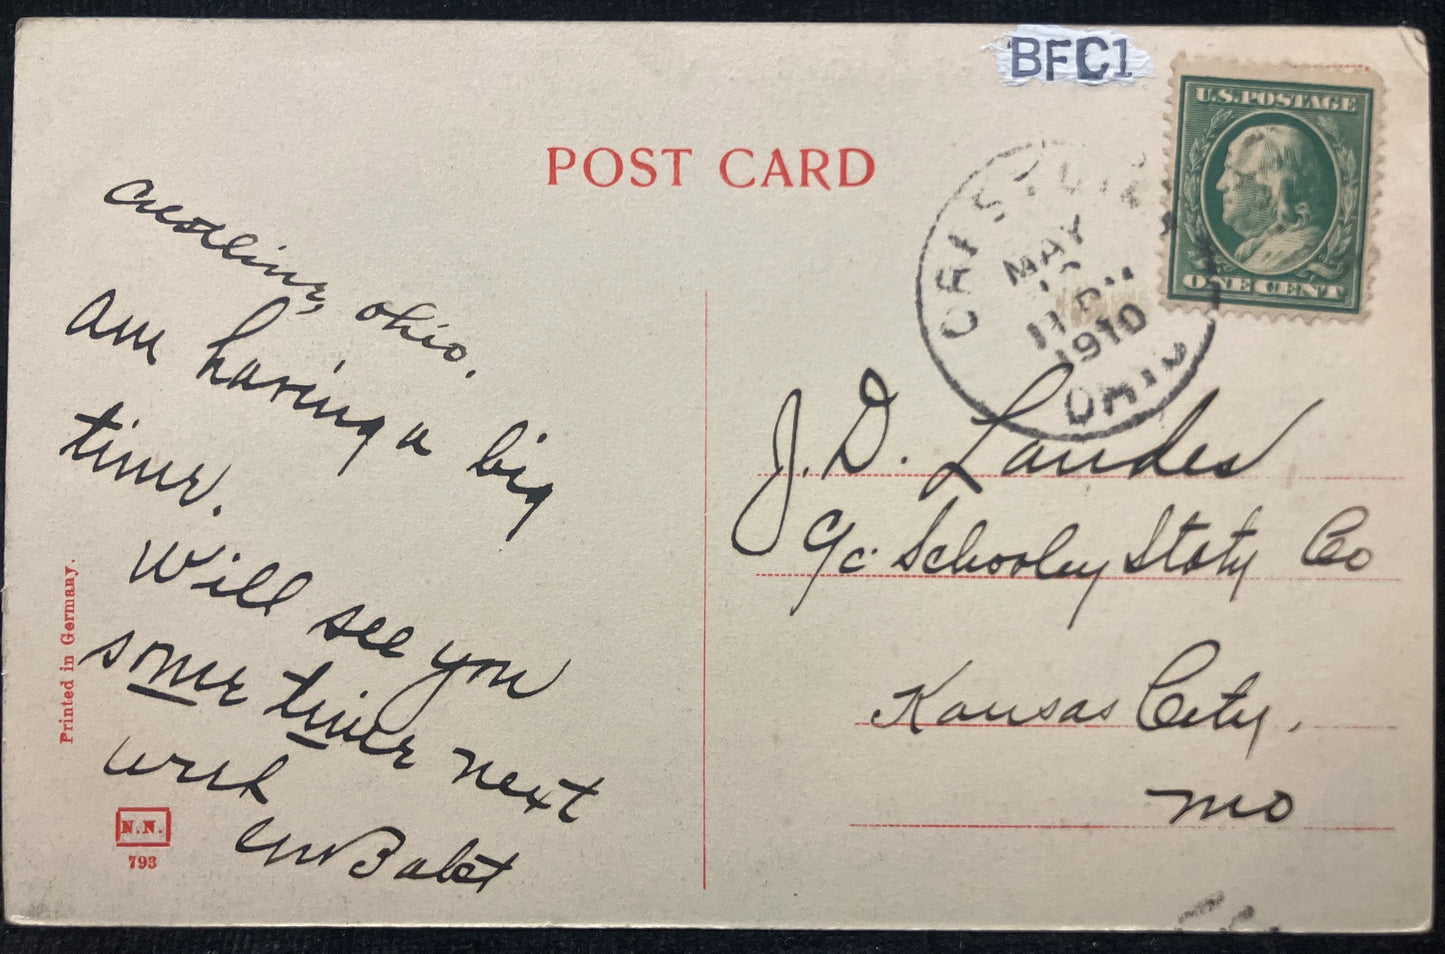 BFC1
U.S. POSTAGE
ONE CENT
POST CARD
MAY
1910
OHIO
Crestline, Ohio.
Am having a big
time.
Will see you
some time next
week
J. D. Landes
c/o Schooley Staty Co
Kansas City,
Mo
Printed in Germany.
N.N.
793